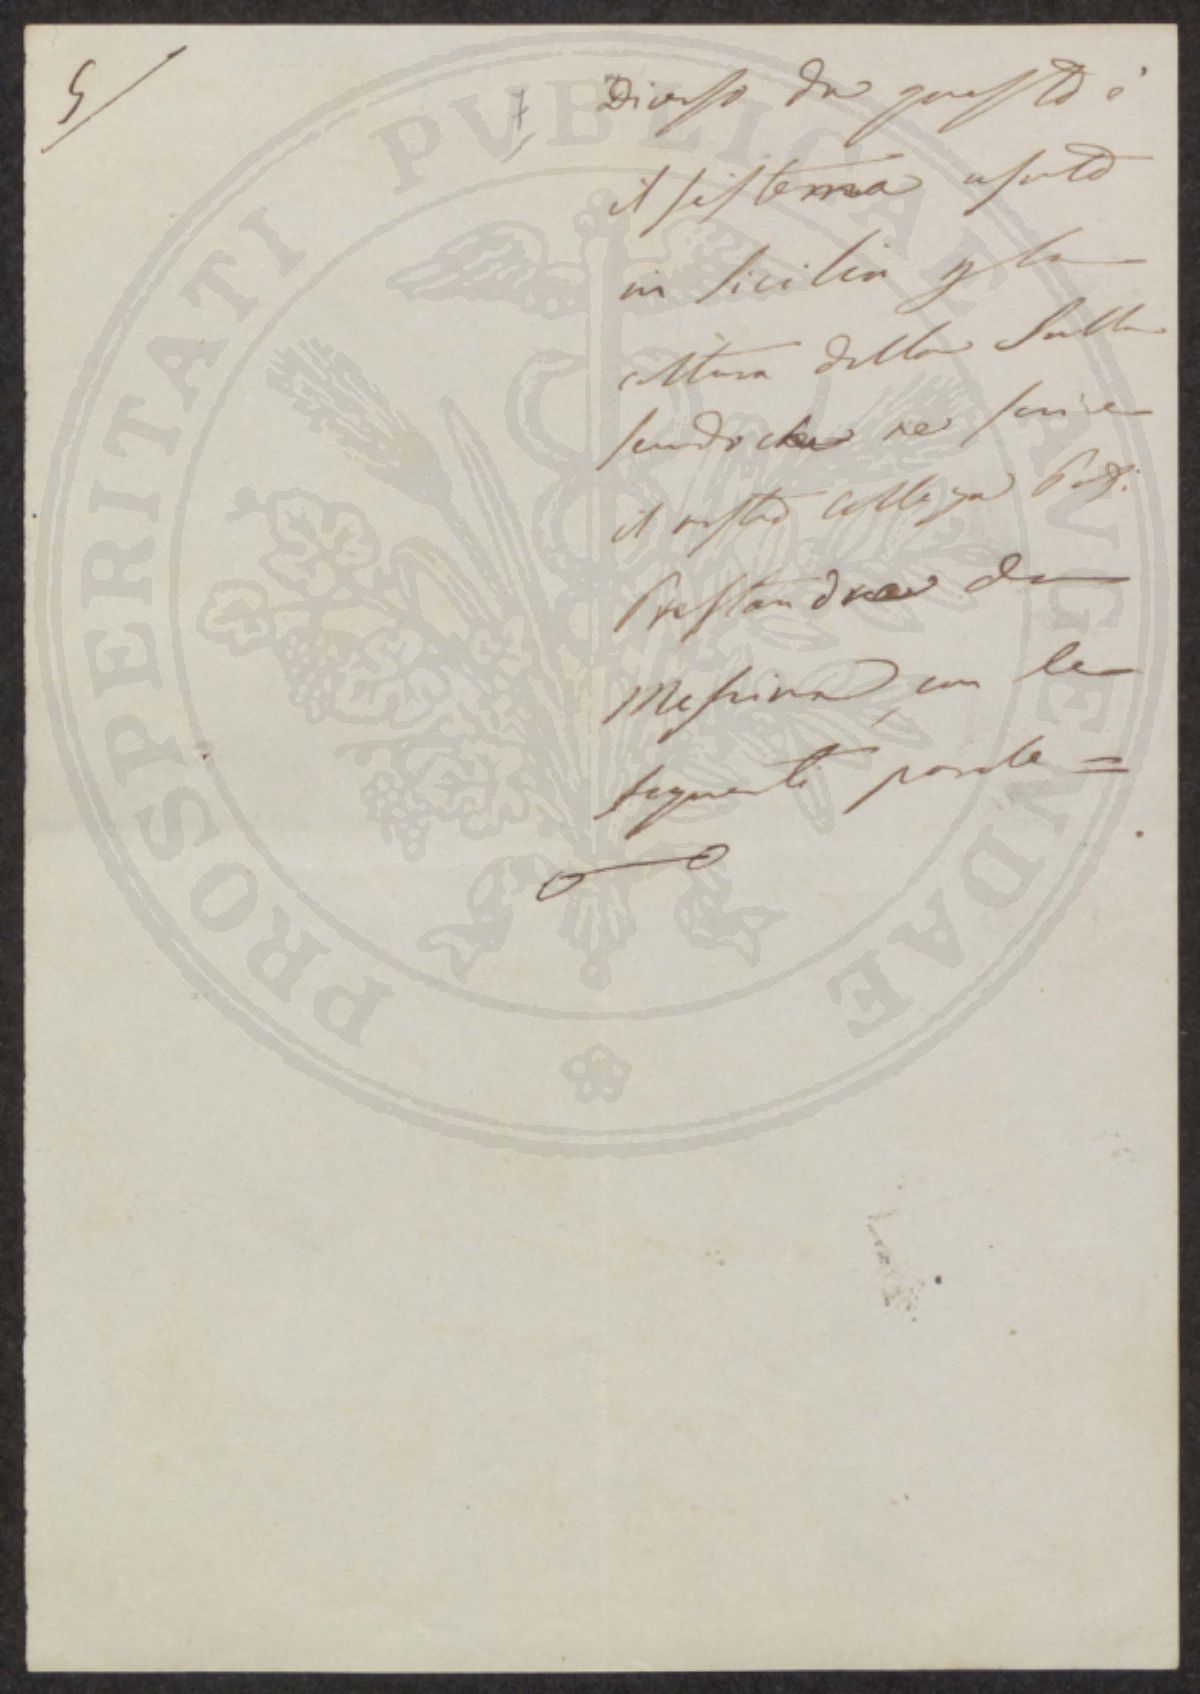 5/
Diverso da questo è
il sistema usato
in Sicilia p la
coltura della Sulla
secondo che ne scrive
il nostro Collega Prof:
Prestandrea da
Messina, con le
seguenti parole =
PROSPERITATI PVBLICAE AVGENDAE